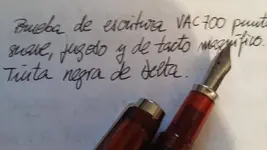 Prueba de escritura VAC700 punto
suave, jugoso y de tacto magnífico.
Tinta negra de Delta.